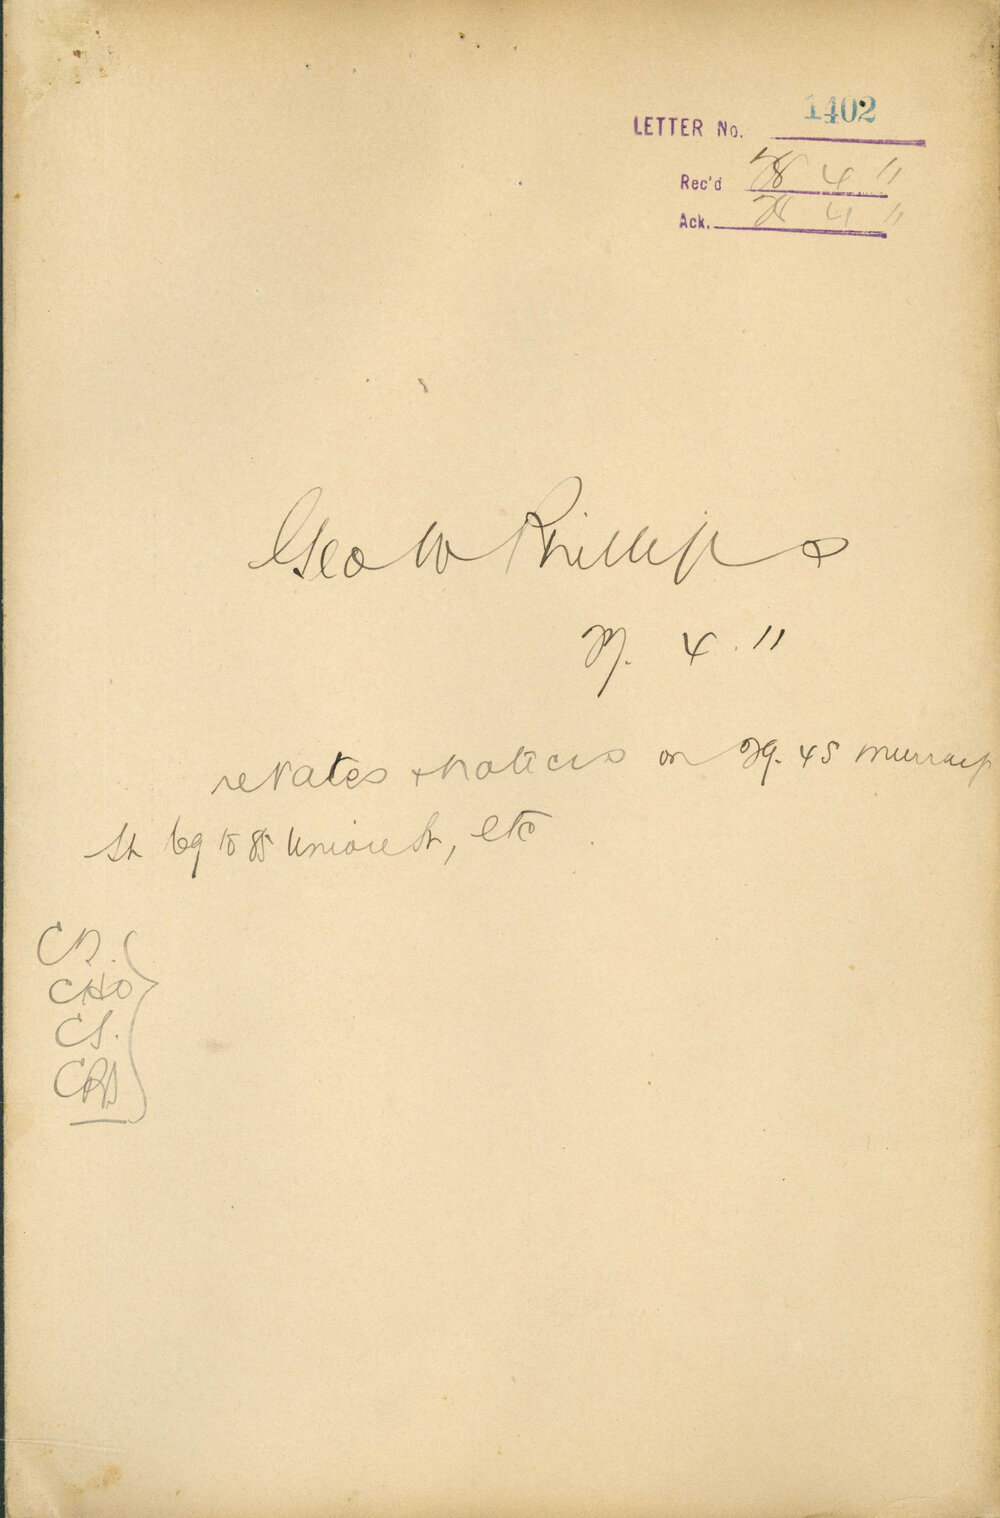 LETTER No. 1402
Rec'd 28 4 11
Ack. 28 4 11
Geo W Phillips
27. 4. 11
re rates + notices on 29. 45 Murray
St 69 to 85 Union St, etc
CHO
CS.